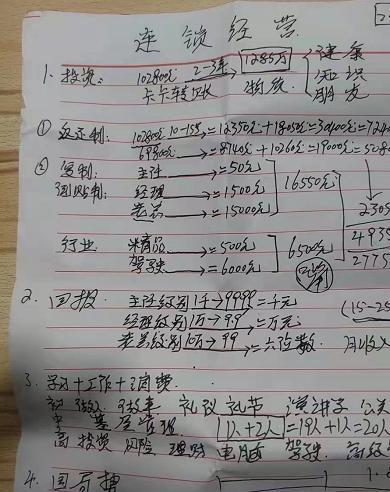 连锁经营
1. 投资: 102800元 2-3年 1285万 健康
卡卡转账 知识
① 返还制: 102800元 10-15年→=12350元+18050元=30400元=724
69800元→=8740元+10260元=19000元=508
② 复制: 主任→=50元
团贴制: 经理→=1500元 16550元
老总→=15000元
2305
行业 →=500元 4935
驾驶→=6000元 6500元 2775
2. 回报 主任级别 1千→9999=千元 (15-25
经理级别 1万→9.9=万元
老总级别 10万→99=六位数 月收入
3. 学习+工作+消费
礼仪 礼节 演讲
管理 1人+2人=19人+1人=20人
高 投资 风险 理财 电脑 驾驶 高级
4.